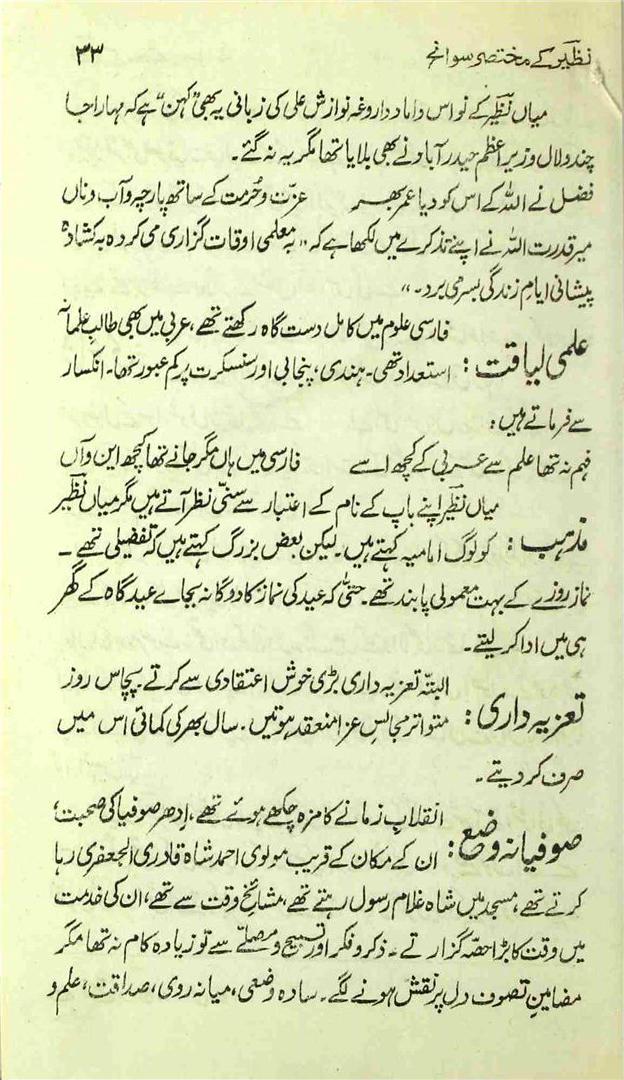 نظیر کے مختصر سوانح ۳۳
میاں نظیر کے نواس داماد داروغہ نوازش علی کی زبانی یہ بھی "کہن" ہے کہ مہاراجا
چندو لال وزیر اعظم حیدر آباد نے بھی بلایا تھا مگر یہ نہ گئے۔
فضل نے اللہ کے اس کو دیا عمر بھر عزت و حُرمت کے ساتھ پارچہ و آب و ناں
میر قدرت اللہ نے اپنے تذکرے میں لکھا ہے کہ "بہ معلمی اوقات گزاری می کردہ بہ کشادہ
پیشانی ایامِ زندگی بسر می برد۔"
فارسی علوم میں کامل دست گاہ رکھتے تھے، عربی میں بھی طالبِ علمانہ
علمی لیاقت: استعداد تھی۔ ہندی، پنجابی اور سنسکرت پر کم عبور تھا۔ انکسار
سے فرماتے ہیں:
فہم نہ تھا علم سے عربی کے کچھ اسے فارسی میں ہاں مگر جانے تھا کچھ این و آں
میاں نظیر اپنے باپ کے نام کے اعتبار سے سنّی نظر آتے ہیں مگر میاں نظیر
مذہب: کو لوگ امامیہ کہتے ہیں۔ لیکن بعض بزرگ کہتے ہیں کہ تفضیلی تھے۔
نماز روزے کے بہت معمولی پابند تھے۔ حتیٰ کہ عید کی نماز کا دوگانہ بجاے عیدگاہ کے گھر
ہی میں ادا کر لیتے۔
البتہ تعزیہ داری بڑی خوش اعتقادی سے کرتے۔ پچاس روز
تعزیہ داری: متواتر مجالسِ عزا منعقد ہوتیں۔ سال بھر کی کمائی اس میں
صرف کر دیتے۔
انقلابِ زمانے کا مزہ چکھے ہوئے تھے، اِدھر صوفیا کی صحبت؛
صوفیانہ وضع: ان کے مکان کے قریب مولوی احمد شاہ قادری الجعفری رہا
کرتے تھے، مسجد میں شاہ غلام رسول رہتے تھے، مشائخِ وقت سے تھے، ان کی خدمت
میں وقت کا بڑا حصّہ گزارتے۔ ذکر و فکر اور تسبیح و مصلّے سے تو زیادہ کام نہ تھا مگر
مضامینِ تصوف دل پر نقش ہونے لگے۔ سادہ وضعی، میانہ روی، صداقت، علم و